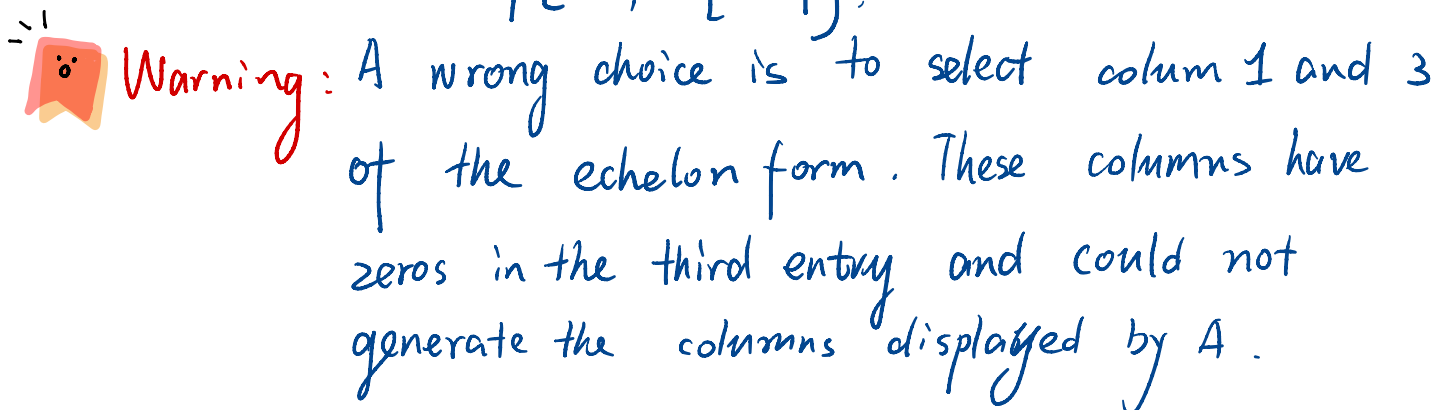 Warning: A wrong choice is to select colum 1 and 3
of the echelon form. These columns have
zeros in the third entry and could not
generate the columns displayed by A.